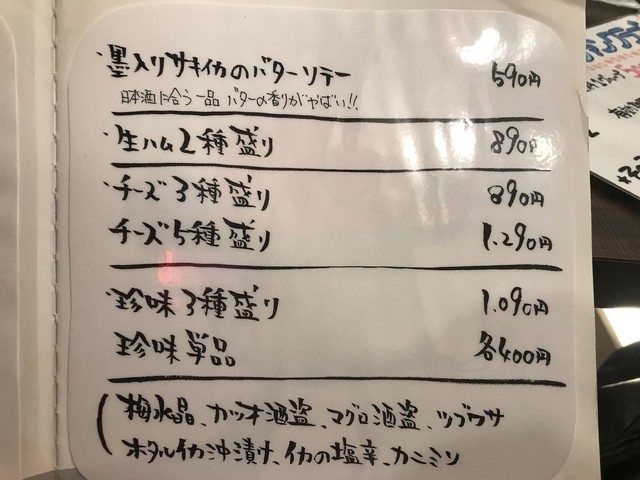 ・墨入りサキイカのバターソテー 590円
日本酒に合う一品 バターの香りがやばい!!
・生ハム2種盛り 890円
・チーズ3種盛り 890円
チーズ5種盛り 1.290円
・珍味3種盛り 1.090円
珍味単品 各400円
(梅水晶、カツオ酒盗、マグロ酒盗、ツブワサ
ホタルイカ沖漬け、イカの塩辛、カニミソ